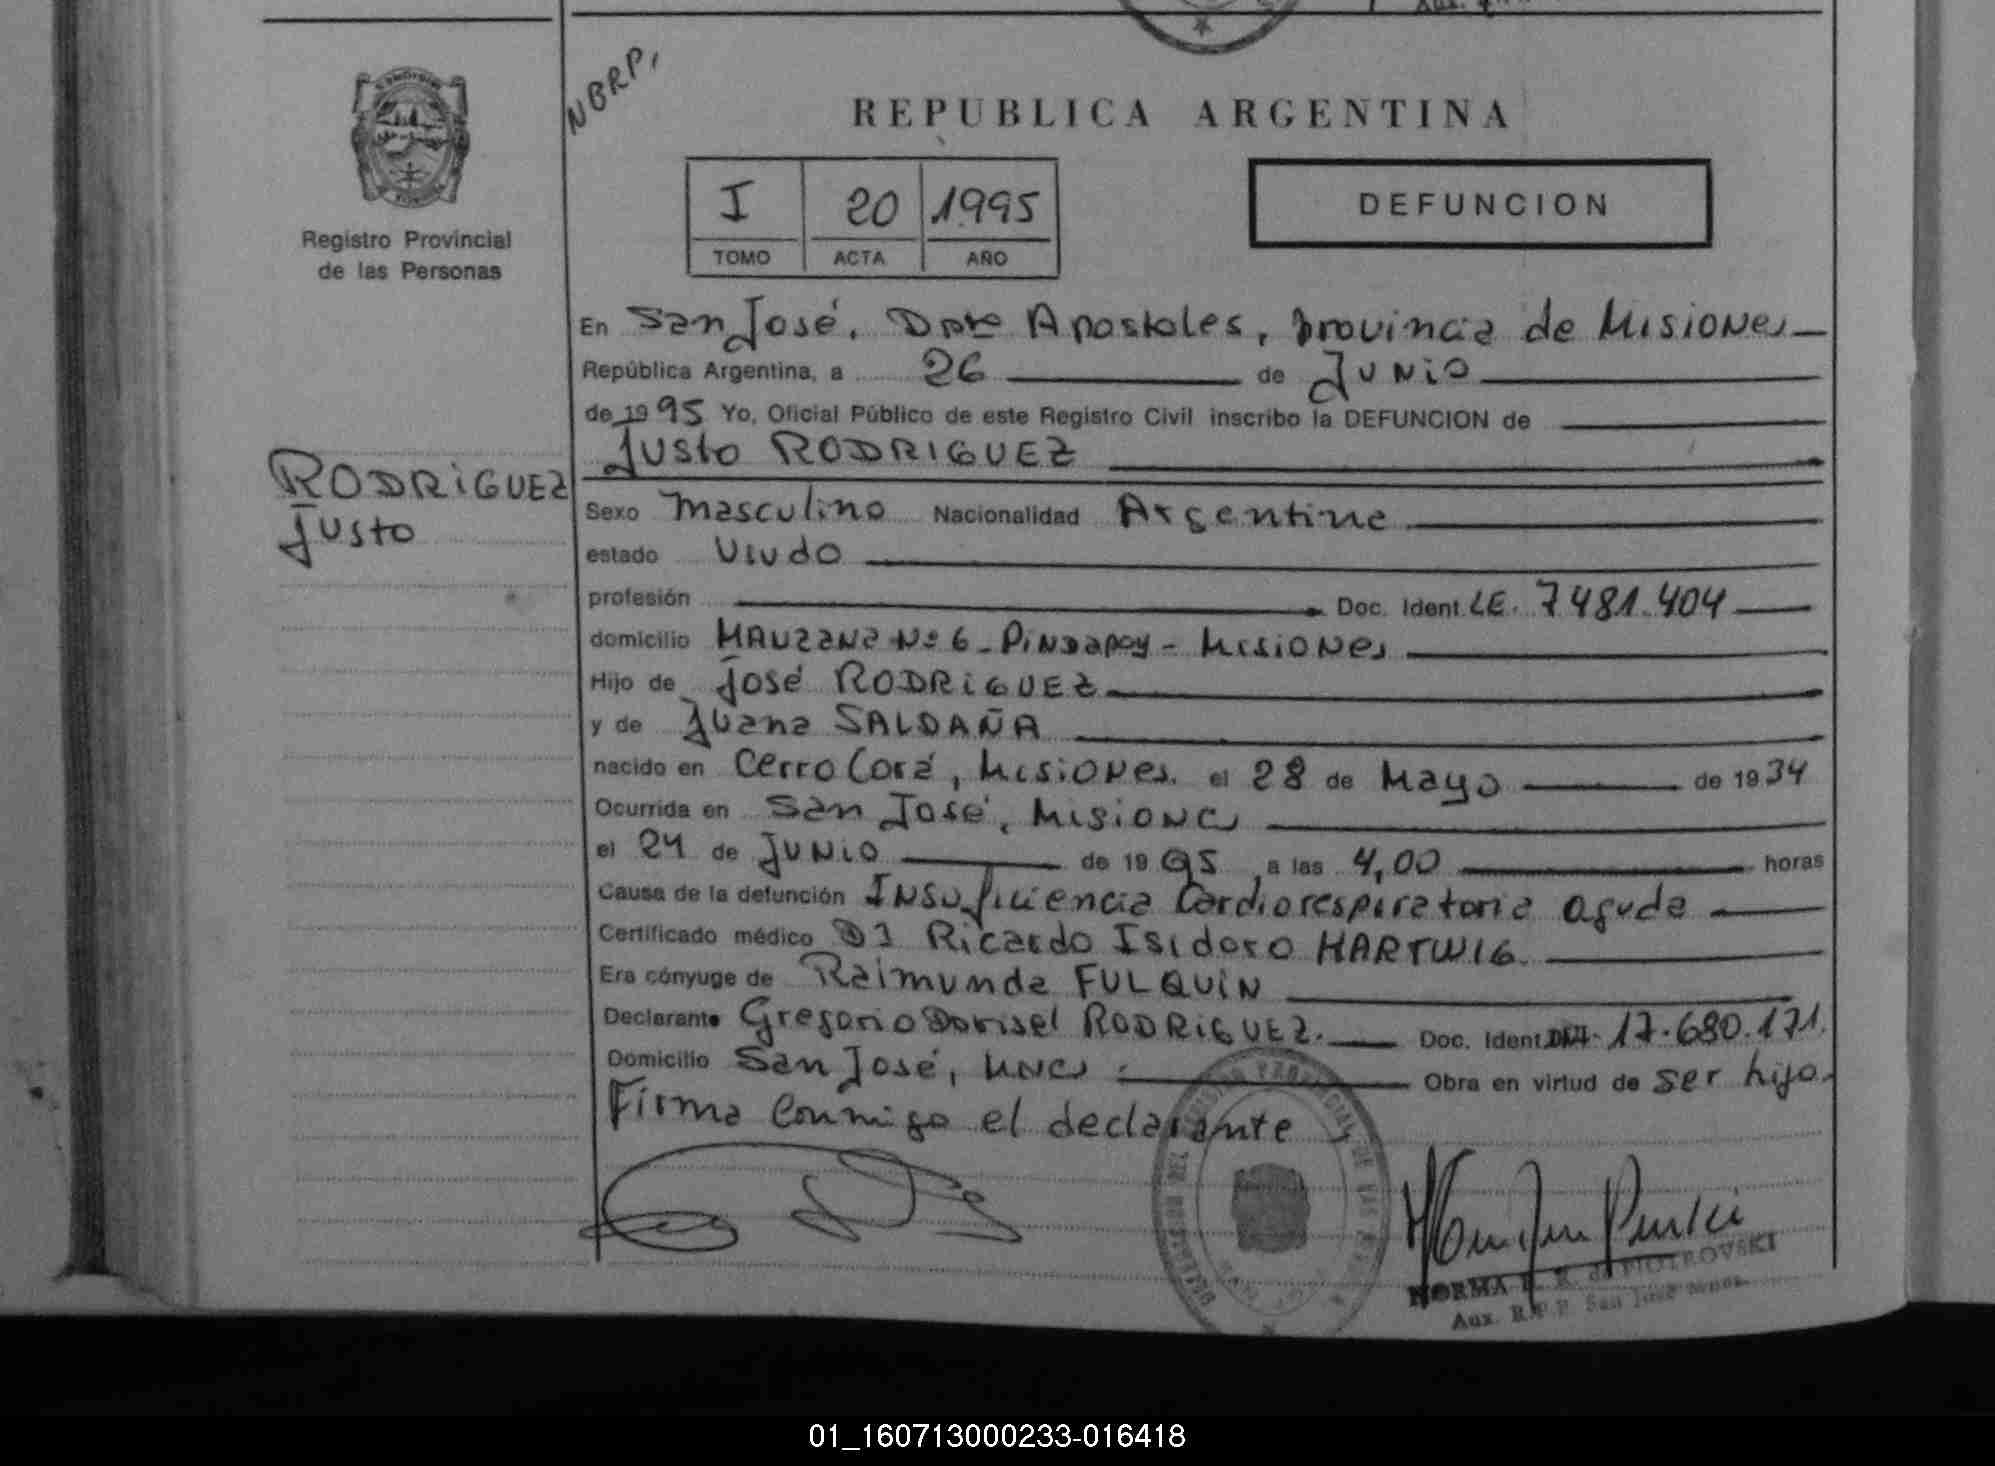 NBRP,
REPUBLICA ARGENTINA
I 20 1995
TOMO ACTA AÑO
DEFUNCION
Registro Provincial
de las Personas
En San José, Dpto Apostoles, provincia de Misiones
República Argentina, a 26 de Junio
de 1995 Yo, Oficial Público de este Registro Civil inscribo la DEFUNCION de
Justo RODRIGUEZ
RODRIGUEZ
Justo
Sexo masculino Nacionalidad Argentina
estado Viudo
profesión Doc. Ident. LE. 7481.404
domicilio Manzana Nº 6 - Pindapoy - Misiones
Hijo de José RODRIGUEZ
y de Juana SALDAÑA
nacido en Cerro Corá, Misiones. el 28 de Mayo de 1934
Ocurrida en San José, Misiones
el 24 de Junio de 1995 a las 4,00 horas
Causa de la defunción Insuficiencia Cardiorespiratoria aguda
Certificado médico Ricardo Isidoro HARTWIG.
Era cónyuge de Raimunda FULQUIN
Declarante Gregorio Dorisel RODRIGUEZ. Doc. Ident. DNI. 17.680.171.
Domicilio San José, Mnes. Obra en virtud de ser hijo.
Firma conmigo el declarante
NORMA B. R. de PIOTROVSKI
Aux. R.P.P. San José Mnes.
01_160713000233-016418